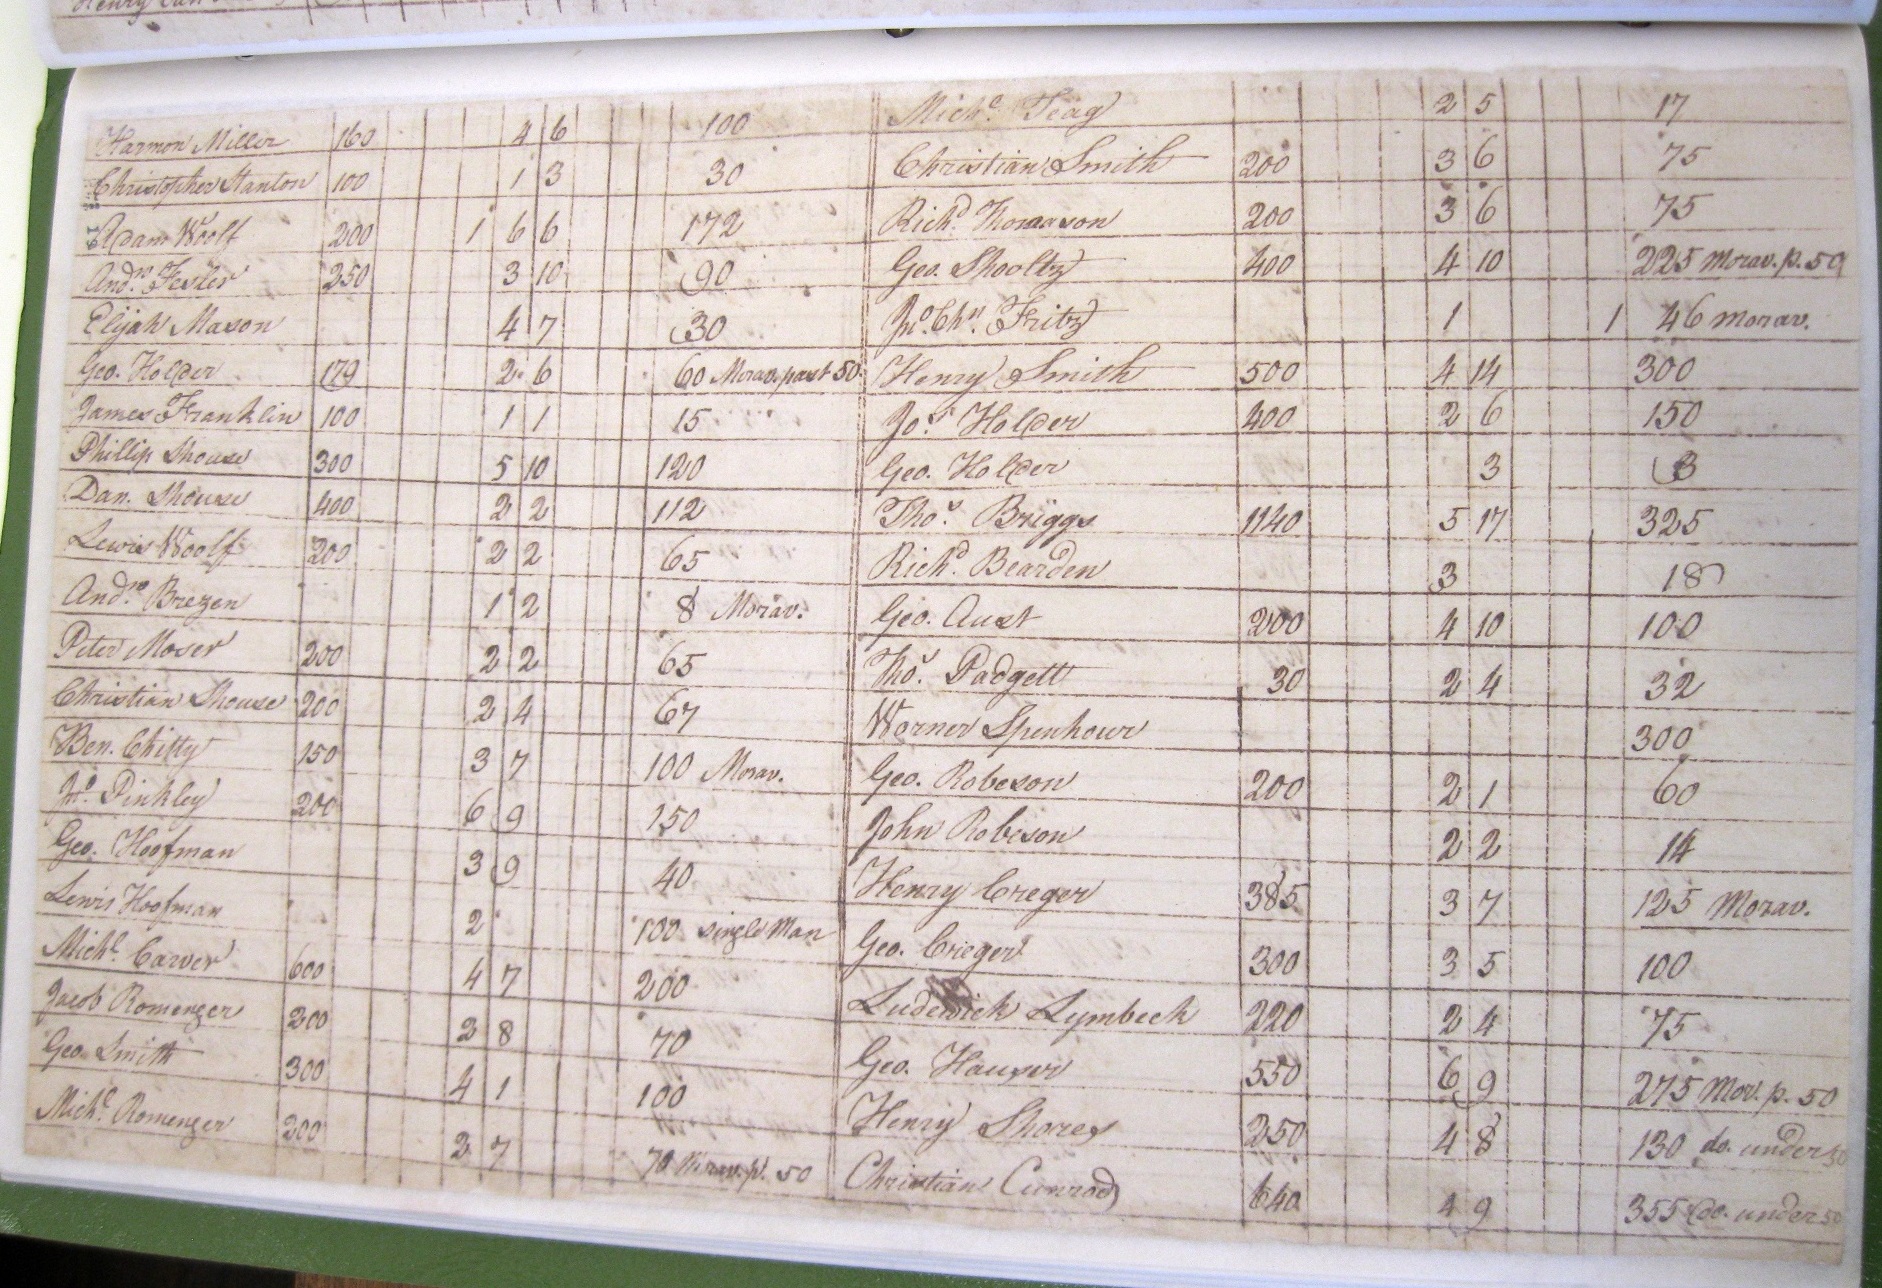 Harmon Miller 160 4 6 100
Christopher Stanton 100 1 3 30
Adam Woolf 200 1 6 6 172
Andw. Fesler 250 3 10 90
Elijah Mason 4 7 30
Geo. Holder 179 2 6 60 Morav. past 50
James Franklin 100 1 1 15
Phillip Shouse 300 5 10 120
Dan. Shouse 400 2 2 112
Lewis Woolf 200 2 2 65
Andw. Brezen 1 2 8 Morav.
Peter Moser 200 2 2 65
Christian Shouse 200 2 4 67
Ben. Chitty 150 3 7 100 Morav.
Jno. Pinkley 200 6 9 150
Geo. Hoofman 3 9 40
Lewis Hoofman 2 100 single Man
Michl. Carver 600 4 7 200
Jacob Romenger 200 2 8 70
Geo. Smith 300 4 1 100
Michl. Romenger 200 2 7 70 Morav. p. 50
Michl. Teag 2 5 17
Christian Smith 200 3 6 75
Richd. Thomason 200 3 6 75
Geo. Shooltz 400 4 10 225 Morav. p. 50
Jno. Chn. Fritz 1 1 46 Morav.
Henry Smith 500 4 14 300
Jos. Holder 400 2 6 150
Geo. Holder 3 3
Thos. Briggs 1140 5 17 325
Richd. Bearden 3 18
Geo. Aust 200 4 10 100
Thos. Padgett 30 2 4 32
Worner Spenhowr 300
Geo. Robeson 200 2 1 60
John Robeson 2 2 14
Henry Creger 385 3 7 125 Morav.
Geo. Crieger 300 3 5 100
Ludewick Lymbeck 220 2 4 75
Geo. Hauser 550 6 9 275 Mov. p. 50
Henry Shores 250 4 8 130 do. under 50
Christian Cunrod 640 4 9 355 do. under 50